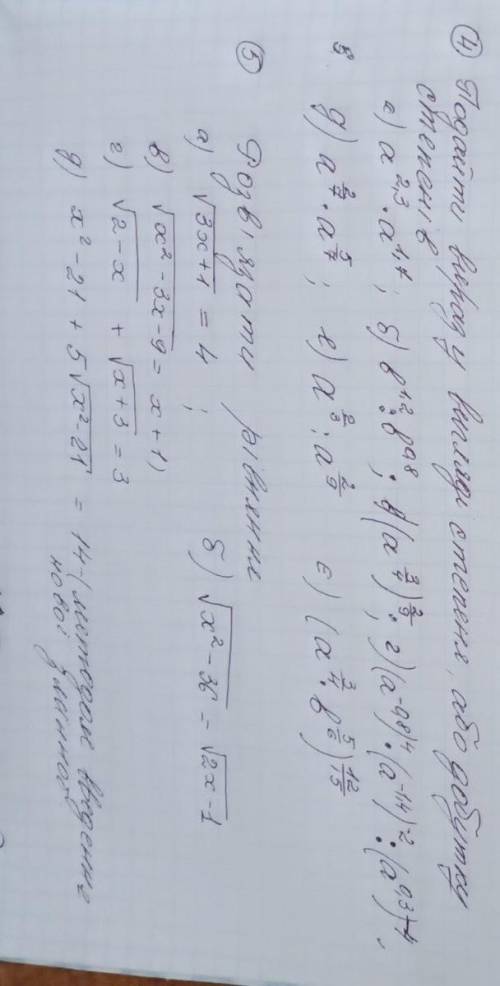 ④ Подайти вираз у вигляді степеня, або добутку
степенів
а) a^{2,3} · a^{1,4}; б) b^{4,2} : b^{0,8}; в) (a^{3/4})^{2/9}; г) (a^{-0,8})^4 · (a^{-1,4})^{-2} : (a^{0,3})^{-4};
д) a^{2/7} · a^{3/7}; е) a^{2/3} : a^{2/9} є) (a^{3/4} · b^{5/6})^{12/15}
⑤ Розв'язати рівняння
а) √(3x+1) = 4; б) √(x²-36) = √(2x-1)
в) √(x²-3x-9) = x+1;
г) √(2-x) + √(x+3) = 3
д) x²-21 + 5√(x²-21) = 14 - (методом введення
нової змінної)